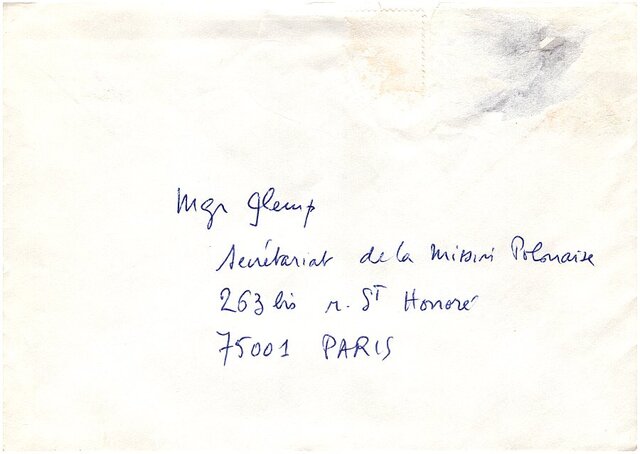 Mgr Glemp
Secrétariat de la Mission Polonaise
263 bis r. ST Honoré
75001 PARIS